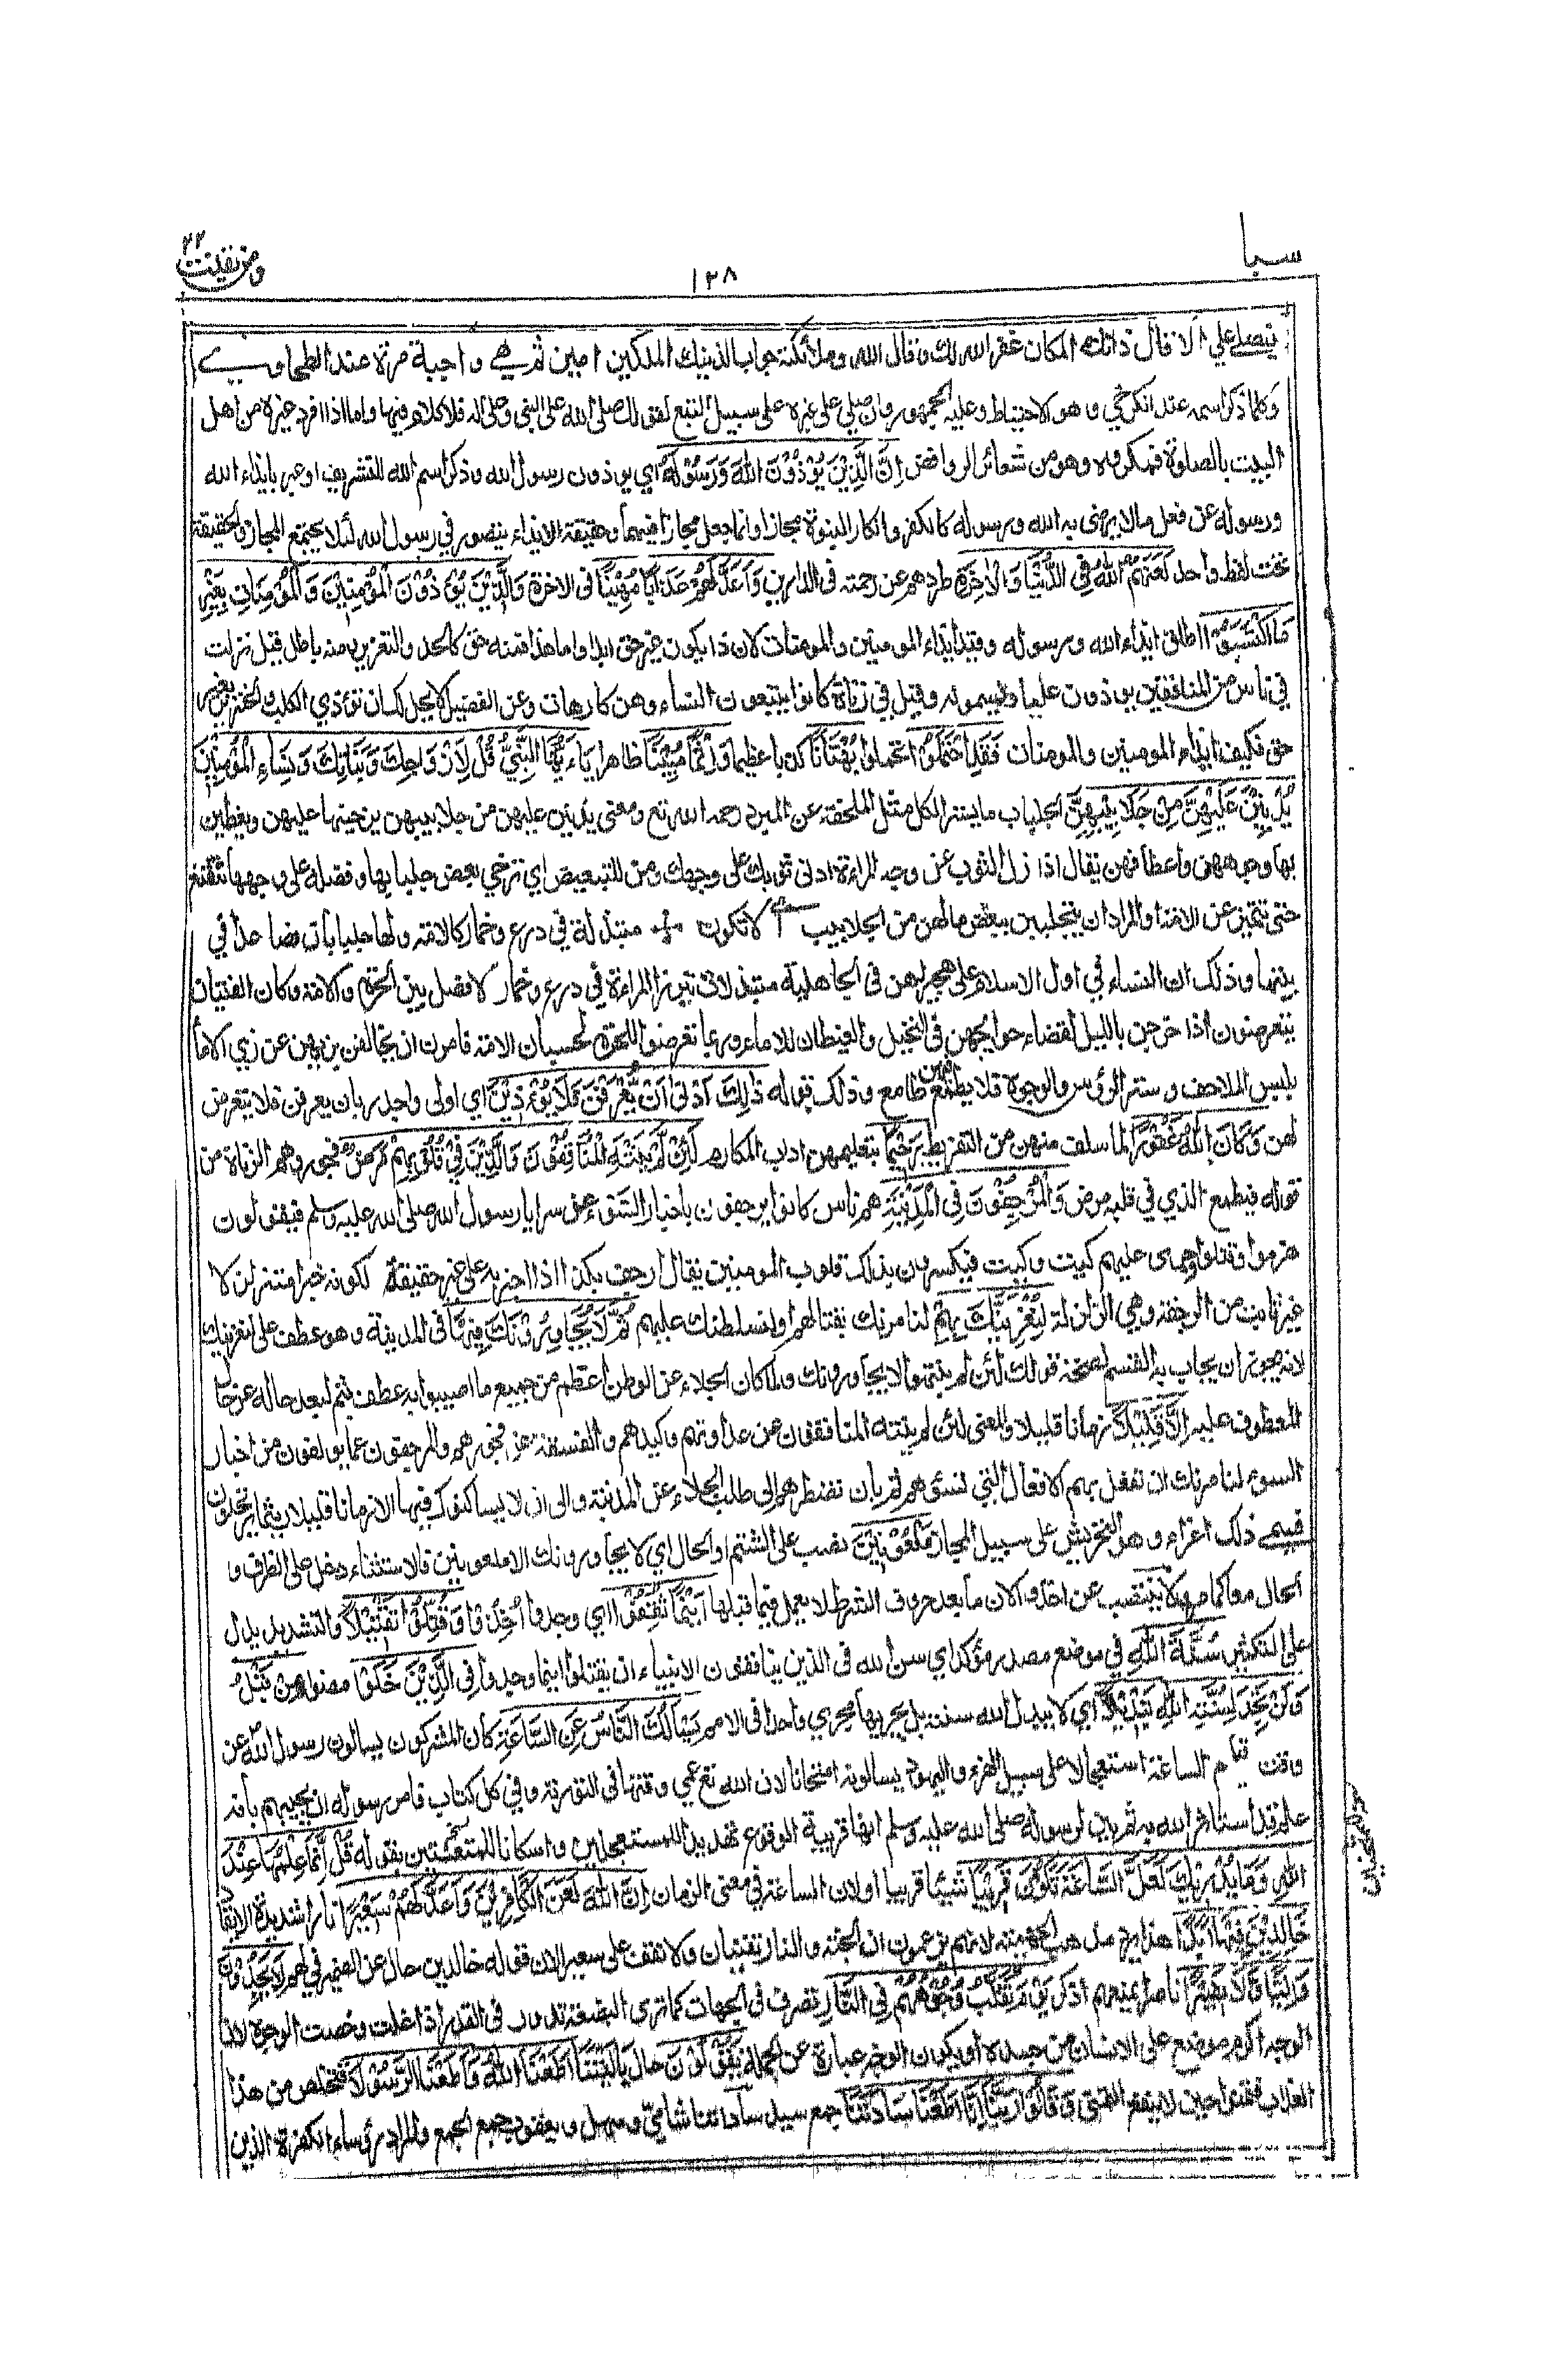 ومن يقنت ٢٢
١٢٨
سبا
فيصلي علي الا قال ذانك الملكان غفر الله لك وقال الله وملائكته جوابا لذينك الملكين امين ثم هي واجبة مرة عند الطحاوي
وكلما ذكر اسمه عند الكرخي وهو الاحتياط وعليه الجمهور وان صلي على غيره على سبيل التبع كقولك صلى الله على النبي وعلى اله فلا كلام فيها واما اذا افرد غيره من اهل
البيت بالصلوة فمكروه وهو من شعائر الروافض اِنَّ الَّذِيْنَ يُؤْذُوْنَ اللّٰهَ وَرَسُوْلَهٗ اي يوذون رسول الله وذكر اسم الله للتشريف او عبر بايذاء الله
ورسوله عن فعل ما لا يرضى به الله ورسوله كالكفر وانكار النبوة مجازا وانما جعل مجازا فيهما وحقيقة الايذاء يتصور في رسول الله لئلا يجتمع المجاز والحقيقة
تحت لفظ واحد لَعَنَهُمُ اللّٰهُ فِي الدُّنْيَا وَالْاٰخِرَةِ طردهم عن رحمته في الدارين وَاَعَدَّ لَهُمْ عَذَابًا مُّهِيْنًا في الاخرة وَالَّذِيْنَ يُؤْذُوْنَ الْمُؤْمِنِيْنَ وَالْمُؤْمِنَاتِ بِغَيْرِ
مَا اكْتَسَبُوْا اطلق ايذاء الله ورسوله وقيد ايذاء المومنين والمومنات لان ذا يكون غير حق ابدا واما هذا فمنه حق كالحد والتعزير ومنه باطل قيل نزلت
في ناس من المنافقين يوذون عليا ويسمعونه وقيل في زناة كانوا يتبعون النساء وهن كارهات وعن الفضيل لا يحل لك ان تؤذي الكلب والخنزير بغير
حق فكيف ايذاء المومنين والمومنات فَقَدِ احْتَمَلُوْا تحملوا بُهْتَانًا كذبا عظيما وَّاِثْمًا مُّبِيْنًا ظاهرا يَاۤ اَيُّهَا النَّبِيُّ قُلْ لِّاَزْوَاجِكَ وَبَنَاتِكَ وَنِسَاءِ الْمُؤْمِنِيْنَ
يُدْنِيْنَ عَلَيْهِنَّ مِنْ جَلَابِيْبِهِنَّ الجلباب ما يستر الكل مثل الملحفة عن المبرد رحمه الله تع ومعنى يدنين عليهن من جلابيبهن يرخينها عليهن ويغطين
بها وجوههن واعطافهن يقال اذا زل الثوب عن وجه المراءة ادنى ثوبك على وجهك ومن للتبعيض اي ترخي بعض جلبابها وفضله على وجهها تتقنع
حتى تتميز عن الامة او المراد ان يتجلببن ببعض ما لهن من الجلابيب لا تكون متبذلة في درع وخمار كالامة ولها جلبابان فصاعدا في
بيتها وذلك ان النساء في اول الاسلام على هجيراهن في الجاهلية متبذلات تبرز المراءة في درع وخمار لا فضل بين الحرة والامة وكان الفتيان
يتعرضون اذا خرجن بالليل لقضاء حوايجهن في النخيل والغيطان للاماء وربما تعرضوا للحرة لحسبان الامة فامرت ان يخالفن بزيهن عن زي الاماء
بلبس الملاحف وستر الرؤس والوجوه فلا يطمع فيهن طامع وذلك قوله ذٰلِكَ اَدْنٰى اَنْ يُّعْرَفْنَ فَلَا يُؤْذَيْنَ اي اولى واجدر بان يعرفن فلا يتعرض
لهن وَكَانَ اللّٰهُ غَفُوْرًا لما سلف منهن من التفريط رَّحِيْمًا بتعليمهن اداب المكارم لَئِنْ لَّمْ يَنْتَهِ الْمُنَافِقُوْنَ وَالَّذِيْنَ فِيْ قُلُوْبِهِمْ مَّرَضٌ فجور وهم الزناة من
قوله فيطمع الذي في قلبه مرض وَّالْمُرْجِفُوْنَ فِي الْمَدِيْنَةِ هم ناس كانوا يرجفون باخبار السوء عن سرايا رسول الله صلى الله عليه وسلم فيقولون
هزموا وقتلوا وجرى عليهم كيت وكيت فيكسرون بذلك قلوب المومنين يقال ارجف بكذا اذا اخبر به على غير حقيقة لكونه خبرا متزلزلا
غير ثابت من الرجفة وهي الزلزلة لَنُغْرِيَنَّكَ بِهِمْ لنامرنك بقتالهم او لنسلطنك عليهم ثُمَّ لَا يُجَاوِرُوْنَكَ فِيْهَا في المدينة وهو عطف على لنغرينك
لانه يجوز ان يجاب به القسم لصحة قولك لئن لم ينتهوا لا يجاورونك ولما كان الجلاء عن الوطن اعظم من جميع ما اصيبوا به عطف بثم لبعد حاله عن حال
المعطوف عليه اِلَّا قَلِيْلًا زمانا قليلا والمعنى لئن لم ينته المنافقون عن عداوتهم وكيدهم والفسقة عن فجورهم والمرجفون عما يولفون من اخبار
السوء لنامرنك ان تفعل بهم الافعال التي تسؤهم ثم بان تضطرهم الى طلب الجلاء عن المدينة والى ان لا يساكنوك فيها الا زمانا قليلا ريثما يرتحلون
فسمي ذلك اغراء وهو التحريش على سبيل المجاز مَلْعُوْنِيْنَ نصب على الشتم او الحال اي لا يجاورونك الا ملعونين فالاستثناء دخل على الظرف و
الحال معا كما مر ولا ينتصب عن اخذوا لان ما بعد حروف الشرط لا يعمل فيما قبلها اَيْنَمَا ثُقِفُوْا اي وجدوا اُخِذُوْا وَقُتِّلُوْا تَقْتِيْلًا والتشديد يدل
على التكثير سُنَّةَ اللّٰهِ في موضع مصدر مؤكد اي سن الله في الذين ينافقون الانبياء ان يقتلوا اينما وجدوا فِي الَّذِيْنَ خَلَوْا مضوا مِنْ قَبْلُ
وَلَنْ تَجِدَ لِسُنَّةِ اللّٰهِ تَبْدِيْلًا اي لا يبدل الله سنته بل يجريها مجرى واحدا في الامم يَسْاَلُكَ النَّاسُ عَنِ السَّاعَةِ كان المشركون يسالون رسول الله عن
وقت قيام الساعة استعجالا على سبيل الهزء واليهود يسالونه امتحانا لان الله تع عمي وقتها في التورىة وفي كل كتاب فامر رسوله ان يجيبهم بانه
علم قد استاثر الله به ثم بين لرسوله صلى الله عليه وسلم انها قريبة الوقوع تهديدا للمستعجلين واسكاتا للمتعنتين بقوله قُلْ اِنَّمَا عِلْمُهَا عِنْدَ
اللّٰهِ وَمَا يُدْرِيْكَ لَعَلَّ السَّاعَةَ تَكُوْنُ قَرِيْبًا شيئا قريبا او لان الساعة في معنى الزمان اِنَّ اللّٰهَ لَعَنَ الْكَافِرِيْنَ وَاَعَدَّ لَهُمْ سَعِيْرًا نارا شديدة الايقاد
خَالِدِيْنَ فِيْهَا اَبَدًا هذا يرد مذهب الجهمية لانهم يزعمون ان الجنة والنار تفنيان ولا تقف على سعيرا لان قوله خالدين حال عن الضمير في لهم لَا يَجِدُوْنَ
وَلِيًّا وَّلَا نَصِيْرًا ناصرا يمنعهم اذكر يَوْمَ تُقَلَّبُ وُجُوْهُهُمْ فِي النَّارِ تصرف في الجهات كما ترى البضعة تدور في القدر اذا غلت وخصت الوجوه لان
الوجه اكرم موضع على الانسان من جسده او يكون الوجه عبارة عن الجملة يَقُوْلُوْنَ حال يَا لَيْتَنَا اَطَعْنَا اللّٰهَ وَاَطَعْنَا الرَّسُوْلَا فنتخلص من هذا
العذاب فتمنوا حين لا ينفعهم التمني وَقَالُوْا رَبَّنَا اِنَّا اَطَعْنَا سَادَتَنَا جمع سيد ساداتنا شامي وسهل ويعقوب جمع الجمع والمراد رؤساء الكفرة الذين